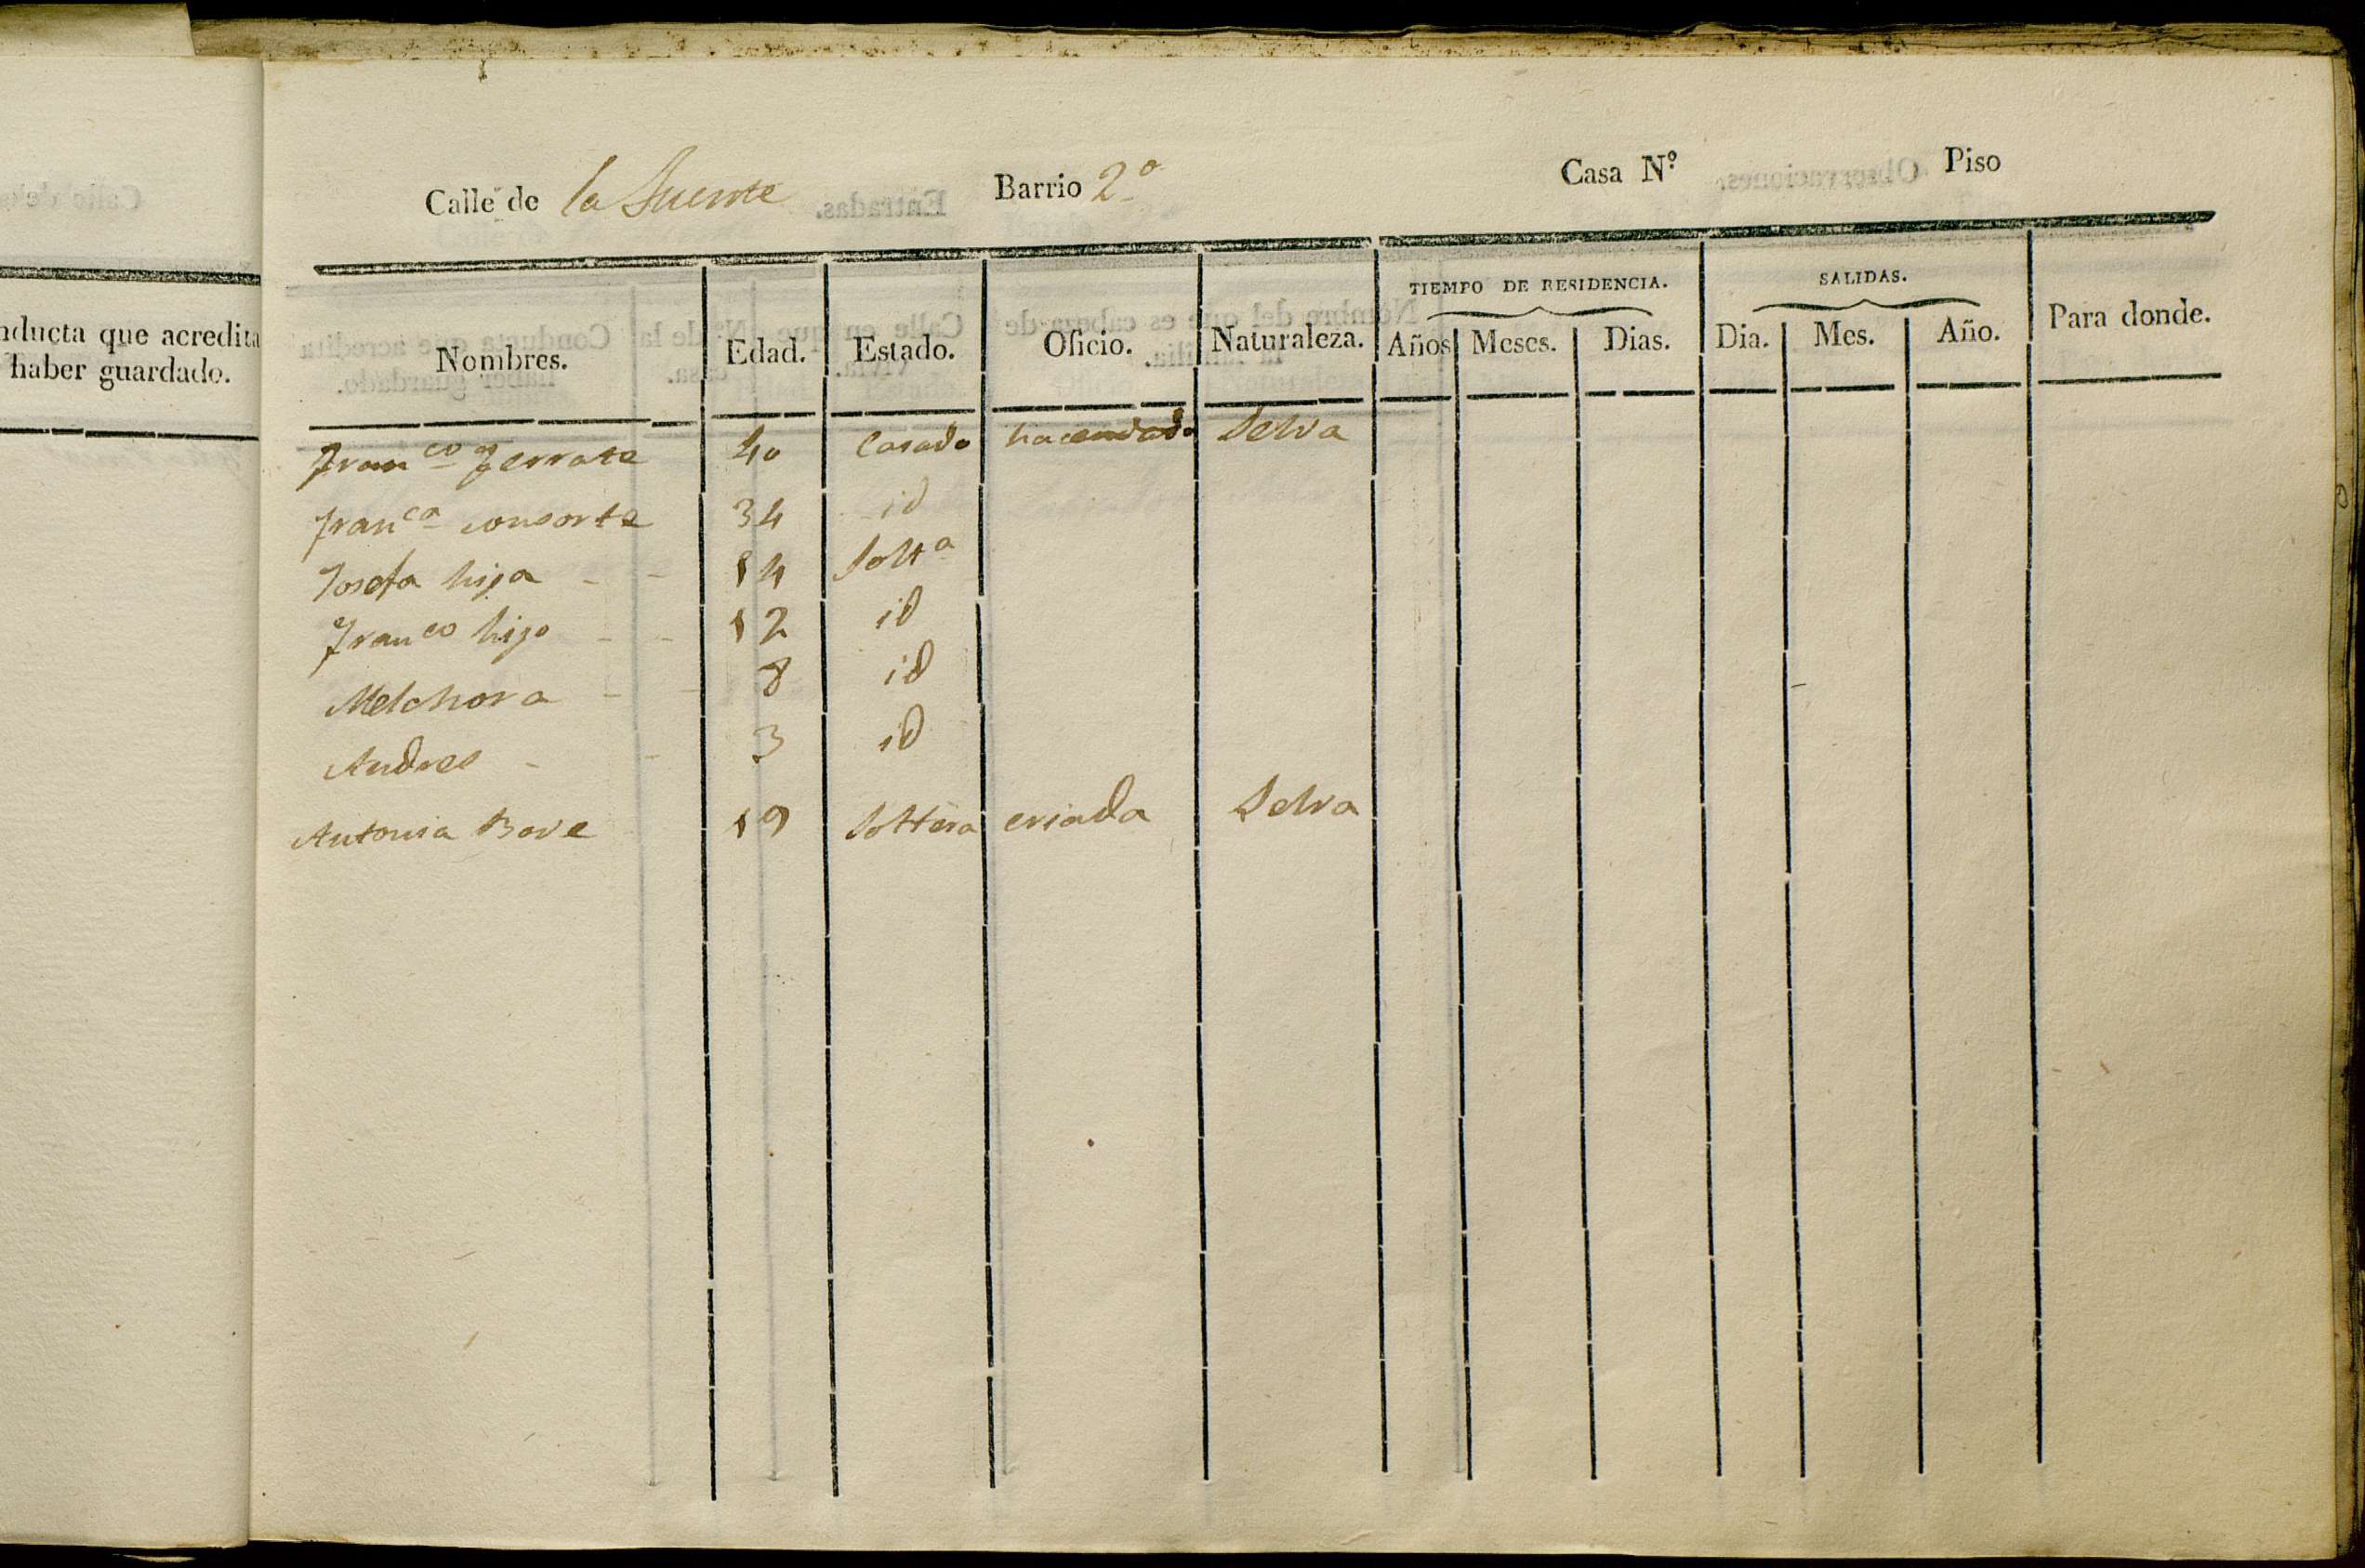 nducta que acredita
haber guardado.
Calle de la Fuente Barrio 2º Casa Nº Piso
TIEMPO DE RESIDENCIA. SALIDAS.
Nombres. Edad. Estado. Oficio. Naturaleza. Años Meses. Dias. Dia. Mes. Año. Para donde.
Franco Ferrate 40 Casado hacendado Selva
Franca consorte 34 id
Josefa hija 14 Solta
Franco hijo 12 id
Melchora 8 id
Andres 3 id
Antonia Bove 19 Soltera criada Selva